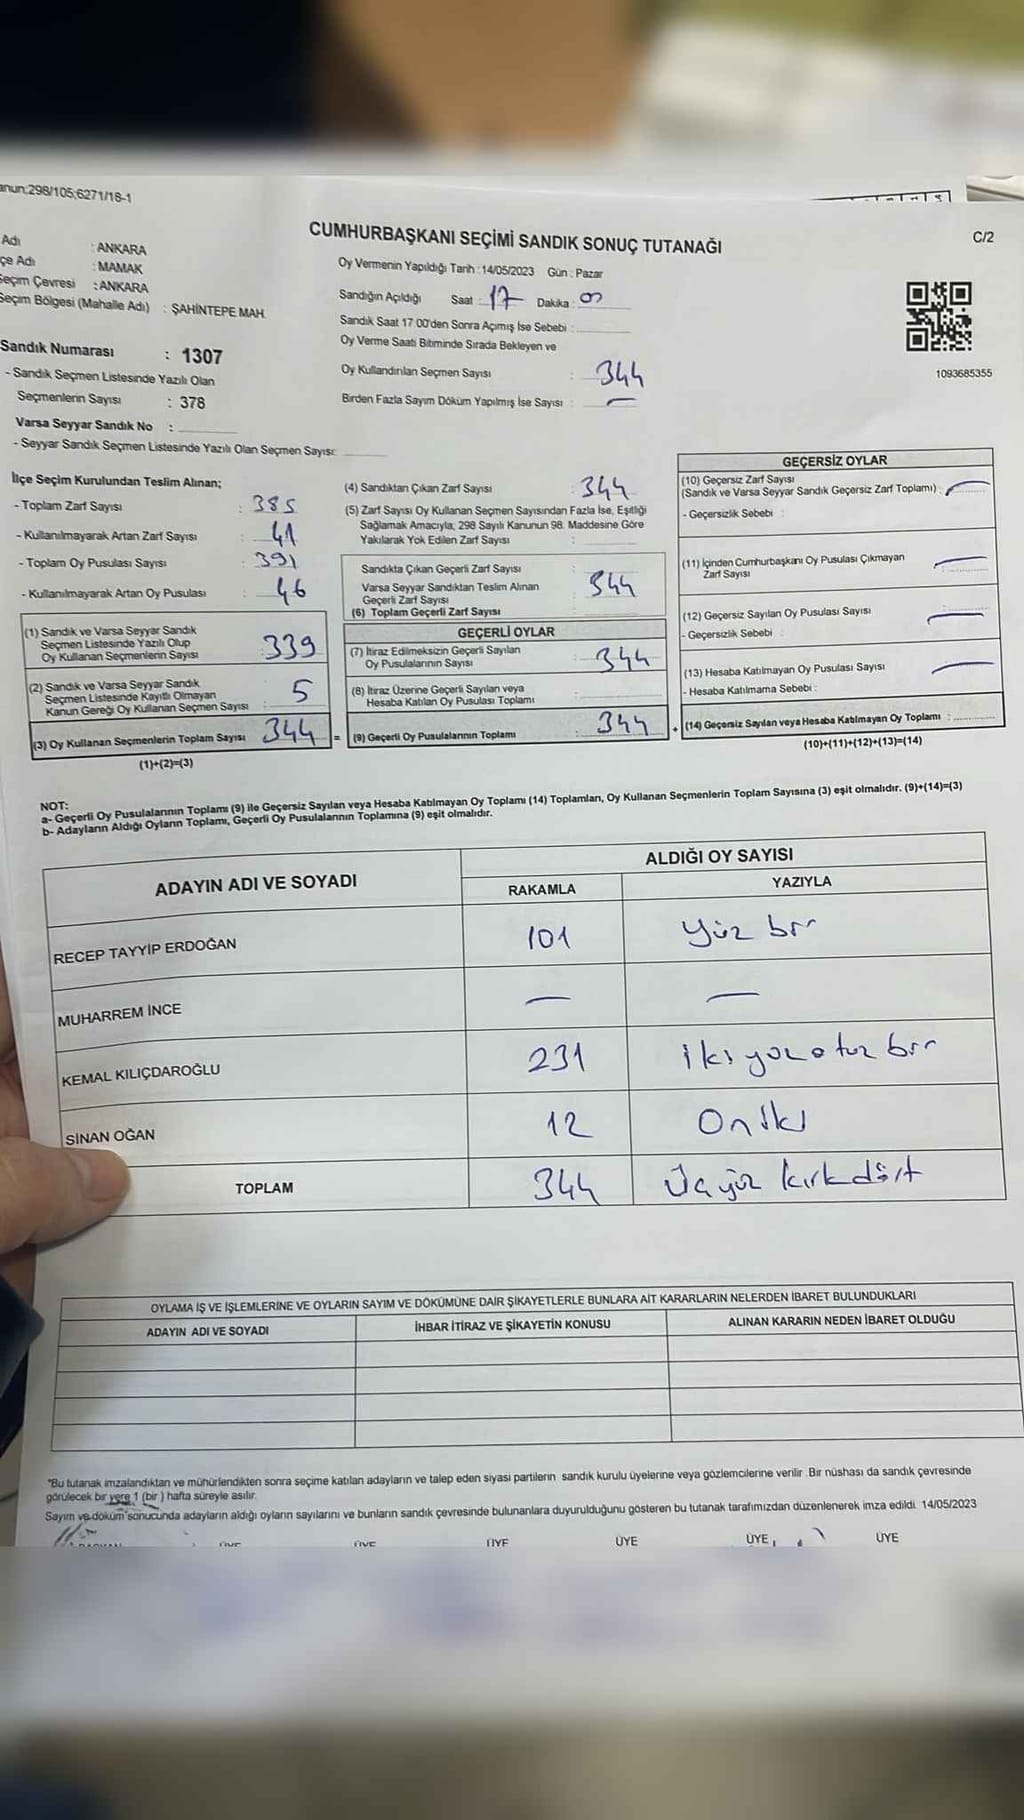 anun:298/105;6271/18-1
CUMHURBAŞKANI SEÇİMİ SANDIK SONUÇ TUTANAĞI
C/2
Adı : ANKARA
çe Adı : MAMAK
Seçim Çevresi : ANKARA
Seçim Bölgesi (Mahalle Adı) : ŞAHİNTEPE MAH.
Sandık Numarası : 1307
- Sandık Seçmen Listesinde Yazılı Olan
Seçmenlerin Sayısı : 378
Varsa Seyyar Sandık No :
- Seyyar Sandık Seçmen Listesinde Yazılı Olan Seçmen Sayısı:
Oy Vermenin Yapıldığı Tarih : 14/05/2023 Gün : Pazar
Sandığın Açıldığı Saat : 17 Dakika : 00
Sandık Saat 17:00'den Sonra Açımış İse Sebebi :
Oy Verme Saati Bitiminde Sırada Bekleyen ve
Oy Kullandırılan Seçmen Sayısı : 344
Birden Fazla Sayım Döküm Yapılmış İse Sayısı : —
1093685355
İlçe Seçim Kurulundan Teslim Alınan;
- Toplam Zarf Sayısı : 385
- Kullanılmayarak Artan Zarf Sayısı : 41
- Toplam Oy Pusulası Sayısı : 391
- Kullanılmayarak Artan Oy Pusulası : 46
(1) Sandık ve Varsa Seyyar Sandık
Seçmen Listesinde Yazılı Olup
Oy Kullanan Seçmenlerin Sayısı : 339
(2) Sandık ve Varsa Seyyar Sandık
Seçmen Listesinde Kayıtlı Olmayan
Kanun Gereği Oy Kullanan Seçmen Sayısı : 5
(3) Oy Kullanan Seçmenlerin Toplam Sayısı 344
(1)+(2)=(3)
(4) Sandıktan Çıkan Zarf Sayısı : 344
(5) Zarf Sayısı Oy Kullanan Seçmen Sayısından Fazla İse, Eşitliği
Sağlamak Amacıyla, 298 Sayılı Kanunun 98. Maddesine Göre
Yakılarak Yok Edilen Zarf Sayısı :
Sandıkta Çıkan Geçerli Zarf Sayısı
Varsa Seyyar Sandıktan Teslim Alınan
Geçerli Zarf Sayısı
(6) Toplam Geçerli Zarf Sayısı : 344
GEÇERLİ OYLAR
(7) İtiraz Edilmeksizin Geçerli Sayılan
Oy Pusulalarının Sayısı : 344
(8) İtiraz Üzerine Geçerli Sayılan veya
Hesaba Katılan Oy Pusulası Toplamı :
= (9) Geçerli Oy Pusulalarının Toplamı : 344
GEÇERSİZ OYLAR
(10) Geçersiz Zarf Sayısı
(Sandık ve Varsa Seyyar Sandık Geçersiz Zarf Toplamı) : —
- Geçersizlik Sebebi :
(11) İçinden Cumhurbaşkanı Oy Pusulası Çıkmayan
Zarf Sayısı : —
(12) Geçersiz Sayılan Oy Pusulası Sayısı : —
- Geçersizlik Sebebi :
(13) Hesaba Katılmayan Oy Pusulası Sayısı : —
- Hesaba Katılmama Sebebi :
+ (14) Geçersiz Sayılan veya Hesaba Katılmayan Oy Toplamı :
(10)+(11)+(12)+(13)=(14)
NOT:
a- Geçerli Oy Pusulalarının Toplamı (9) ile Geçersiz Sayılan veya Hesaba Katılmayan Oy Toplamı (14) Toplamları, Oy Kullanan Seçmenlerin Toplam Sayısına (3) eşit olmalıdır. (9)+(14)=(3)
b- Adayların Aldığı Oyların Toplamı, Geçerli Oy Pusulalarının Toplamına (9) eşit olmalıdır.
ADAYIN ADI VE SOYADI ALDIĞI OY SAYISI
RAKAMLA YAZIYLA
RECEP TAYYİP ERDOĞAN 101 Yüz bir
MUHARREM İNCE — —
KEMAL KILIÇDAROĞLU 231 iki yüz otuz bir
SİNAN OĞAN 12 On iki
TOPLAM 344 Üçyüz kırkdört
OYLAMA İŞ VE İŞLEMLERİNE VE OYLARIN SAYIM VE DÖKÜMÜNE DAİR ŞİKAYETLERLE BUNLARA AİT KARARLARIN NELERDEN İBARET BULUNDUKLARI
ADAYIN ADI VE SOYADI İHBAR İTİRAZ VE ŞİKAYETİN KONUSU ALINAN KARARIN NEDEN İBARET OLDUĞU
*Bu tutanak imzalandıktan ve mühürlendikten sonra seçime katılan adayların ve talep eden siyasi partilerin sandık kurulu üyelerine veya gözlemcilerine verilir. Bir nüshası da sandık çevresinde
görülecek bir yere 1 (bir) hafta süreyle asılır.
Sayım ve döküm sonucunda adayların aldığı oyların sayılarını ve bunların sandık çevresinde bulunanlara duyurulduğunu gösteren bu tutanak tarafımızdan düzenlenerek imza edildi. 14/05/2023
BAŞKAN ÜYE ÜYE ÜYE ÜYE ÜYE ÜYE